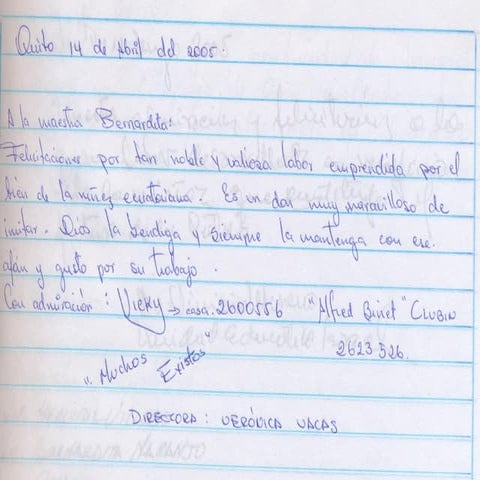 Quito 14 de Abril del 2005.
A la maestra Bernardita:
Felicitaciones por tan noble y valiosa labor emprendida por el
bien de la niñez ecuatoriana. Es un don muy maravilloso de
imitar. Dios la bendiga y siempre la mantenga con ese
afán y gusto por su trabajo.
Con admiración: Vicky → casa. 2600556 "Alfred Binet"
2623526.
"Muchos Exitos"
DIRECTORA: VERÓNICA VACAS